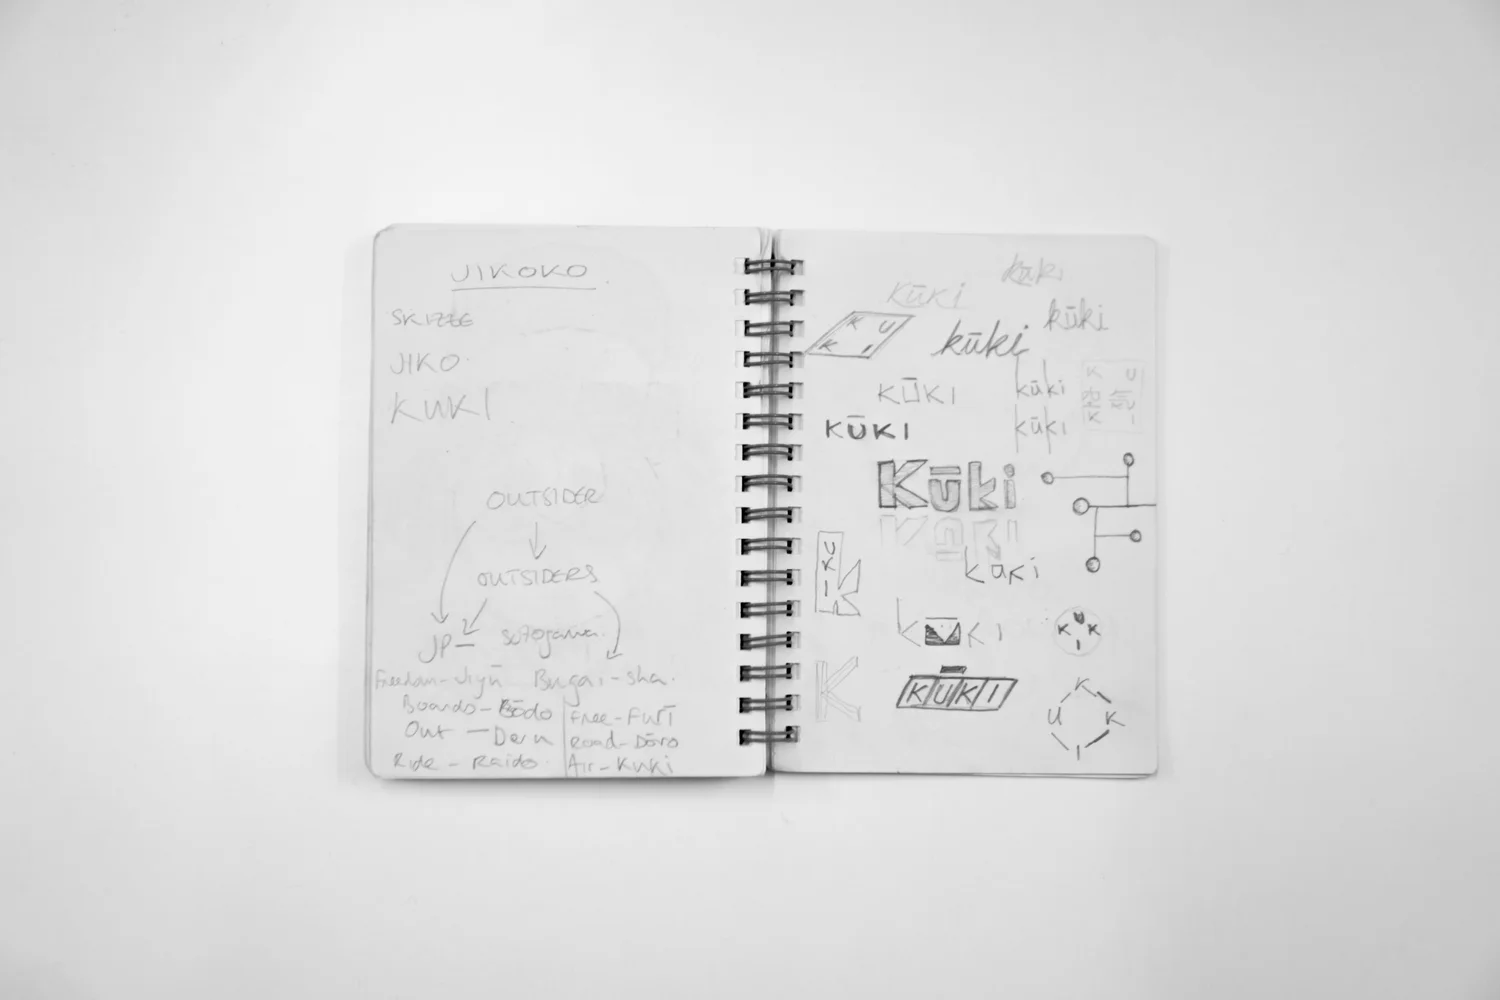 JIKOKO.
SKIZZE
JIKO.
KUKI
OUTSIDER
OUTSIDERS
JP-
Freedom-Jiyū Bugai-sha.
Boardo-Bōdo
Free-FURĪ
Out -
Road-Dōro
Ride - Raido.
Air-KUKI
kūki
KŪKI
K U K I
kūki
kūki
KŪKI
kūki
KŪKI
kūki
Kūki
KUKI
kaki
K KI
KUKI
K
KŪKI
KUKI